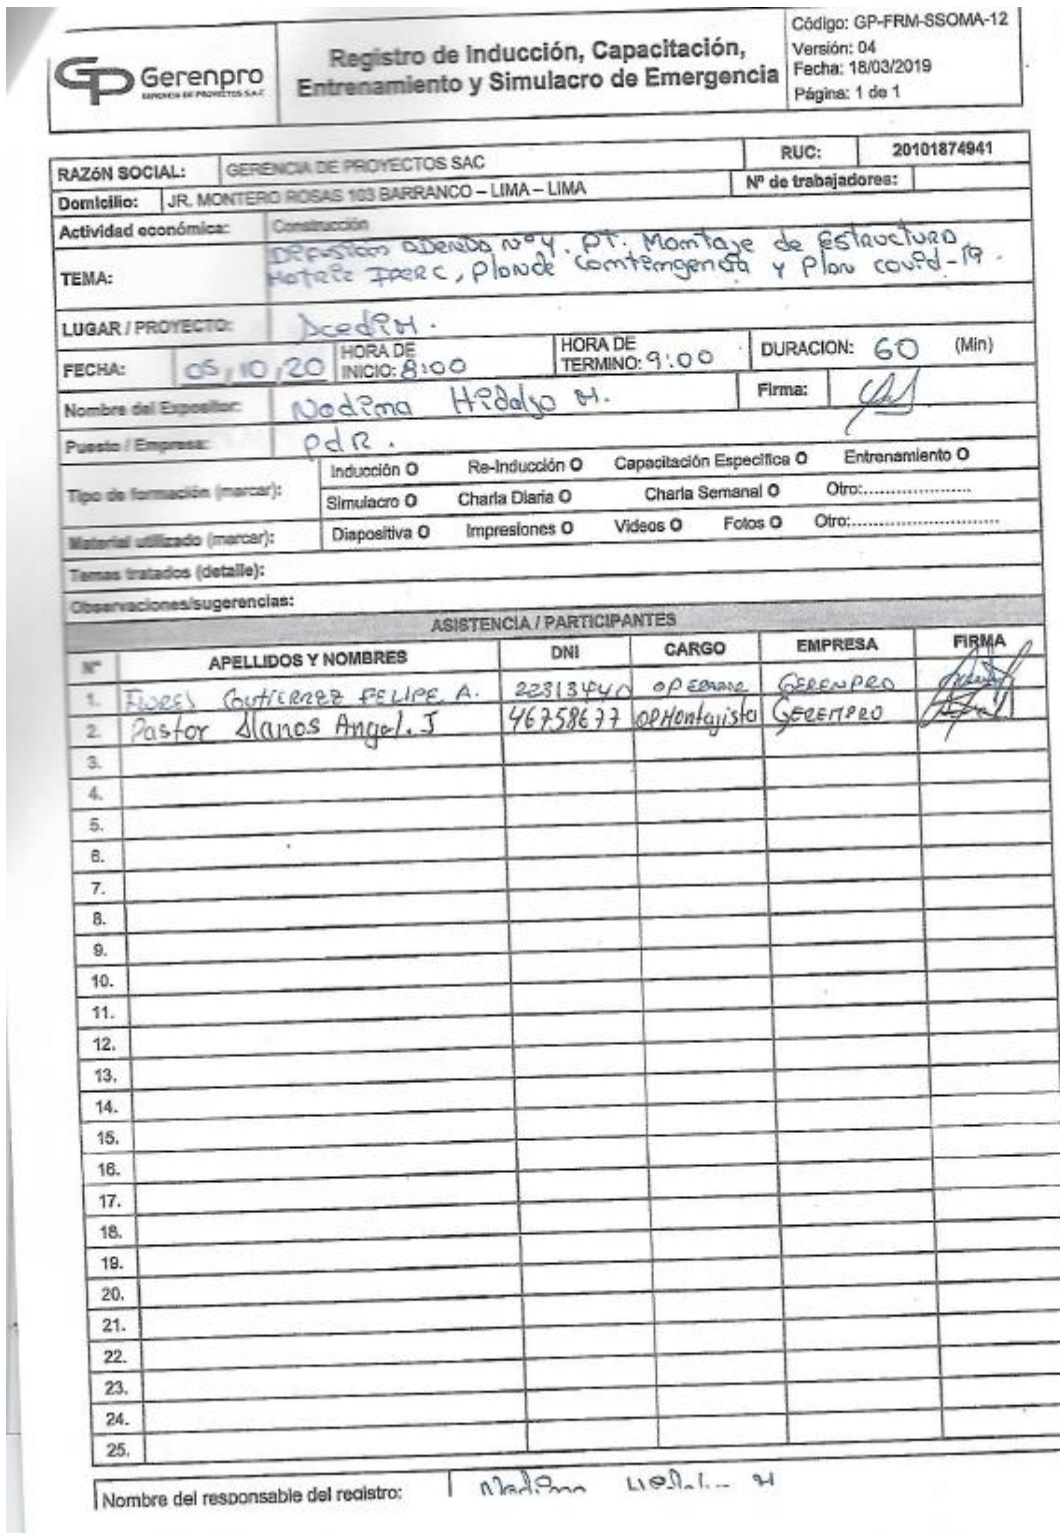 Gerenpro
GERENCIA DE PROYECTOS S.A.C
Registro de Inducción, Capacitación,
Entrenamiento y Simulacro de Emergencia
Código: GP-FRM-SSOMA-12
Versión: 04
Fecha: 18/03/2019
Página: 1 de 1
RAZóN SOCIAL: GERENCIA DE PROYECTOS SAC RUC: 20101874941
Domicilio: JR. MONTERO ROSAS 103 BARRANCO – LIMA – LIMA Nº de trabajadores:
Actividad económica: Construcción
TEMA: Difusion Adenda Nº4. PT. Montaje de Estructura,
Matriz IPERC, Plan de Comtemgencia y Plan covid-19.
LUGAR / PROYECTO: AcediM.
FECHA: 05/10/20 HORA DE INICIO: 8:00 HORA DE TERMINO: 9:00 DURACION: 60 (Min)
Nombre del Expositor: Nadima Hidalgo M. Firma:
Puesto / Empresa: PdR.
Tipo de formación (marcar): Inducción O Re-Inducción O Capacitación Especifica O Entrenamiento O
Simulacro O Charla Diaria O Charla Semanal O Otro:....................
Material utilizado (marcar): Diapositiva O Impresiones O Videos O Fotos O Otro:...........................
Temas tratados (detalle):
Observaciones/sugerencias:
ASISTENCIA / PARTICIPANTES
Nº APELLIDOS Y NOMBRES DNI CARGO EMPRESA FIRMA
1. FLORES GUTIERREZ FELIPE A. 22313440 OPERARIO GERENPRO
2. Pastor Llanos Angel. J 46758677 OP Montajista GERENPRO
3.
4.
5.
6.
7.
8.
9.
10.
11.
12.
13.
14.
15.
16.
17.
18.
19.
20.
21.
22.
23.
24.
25.
Nombre del responsable del registro: Nadima Hidalgo M